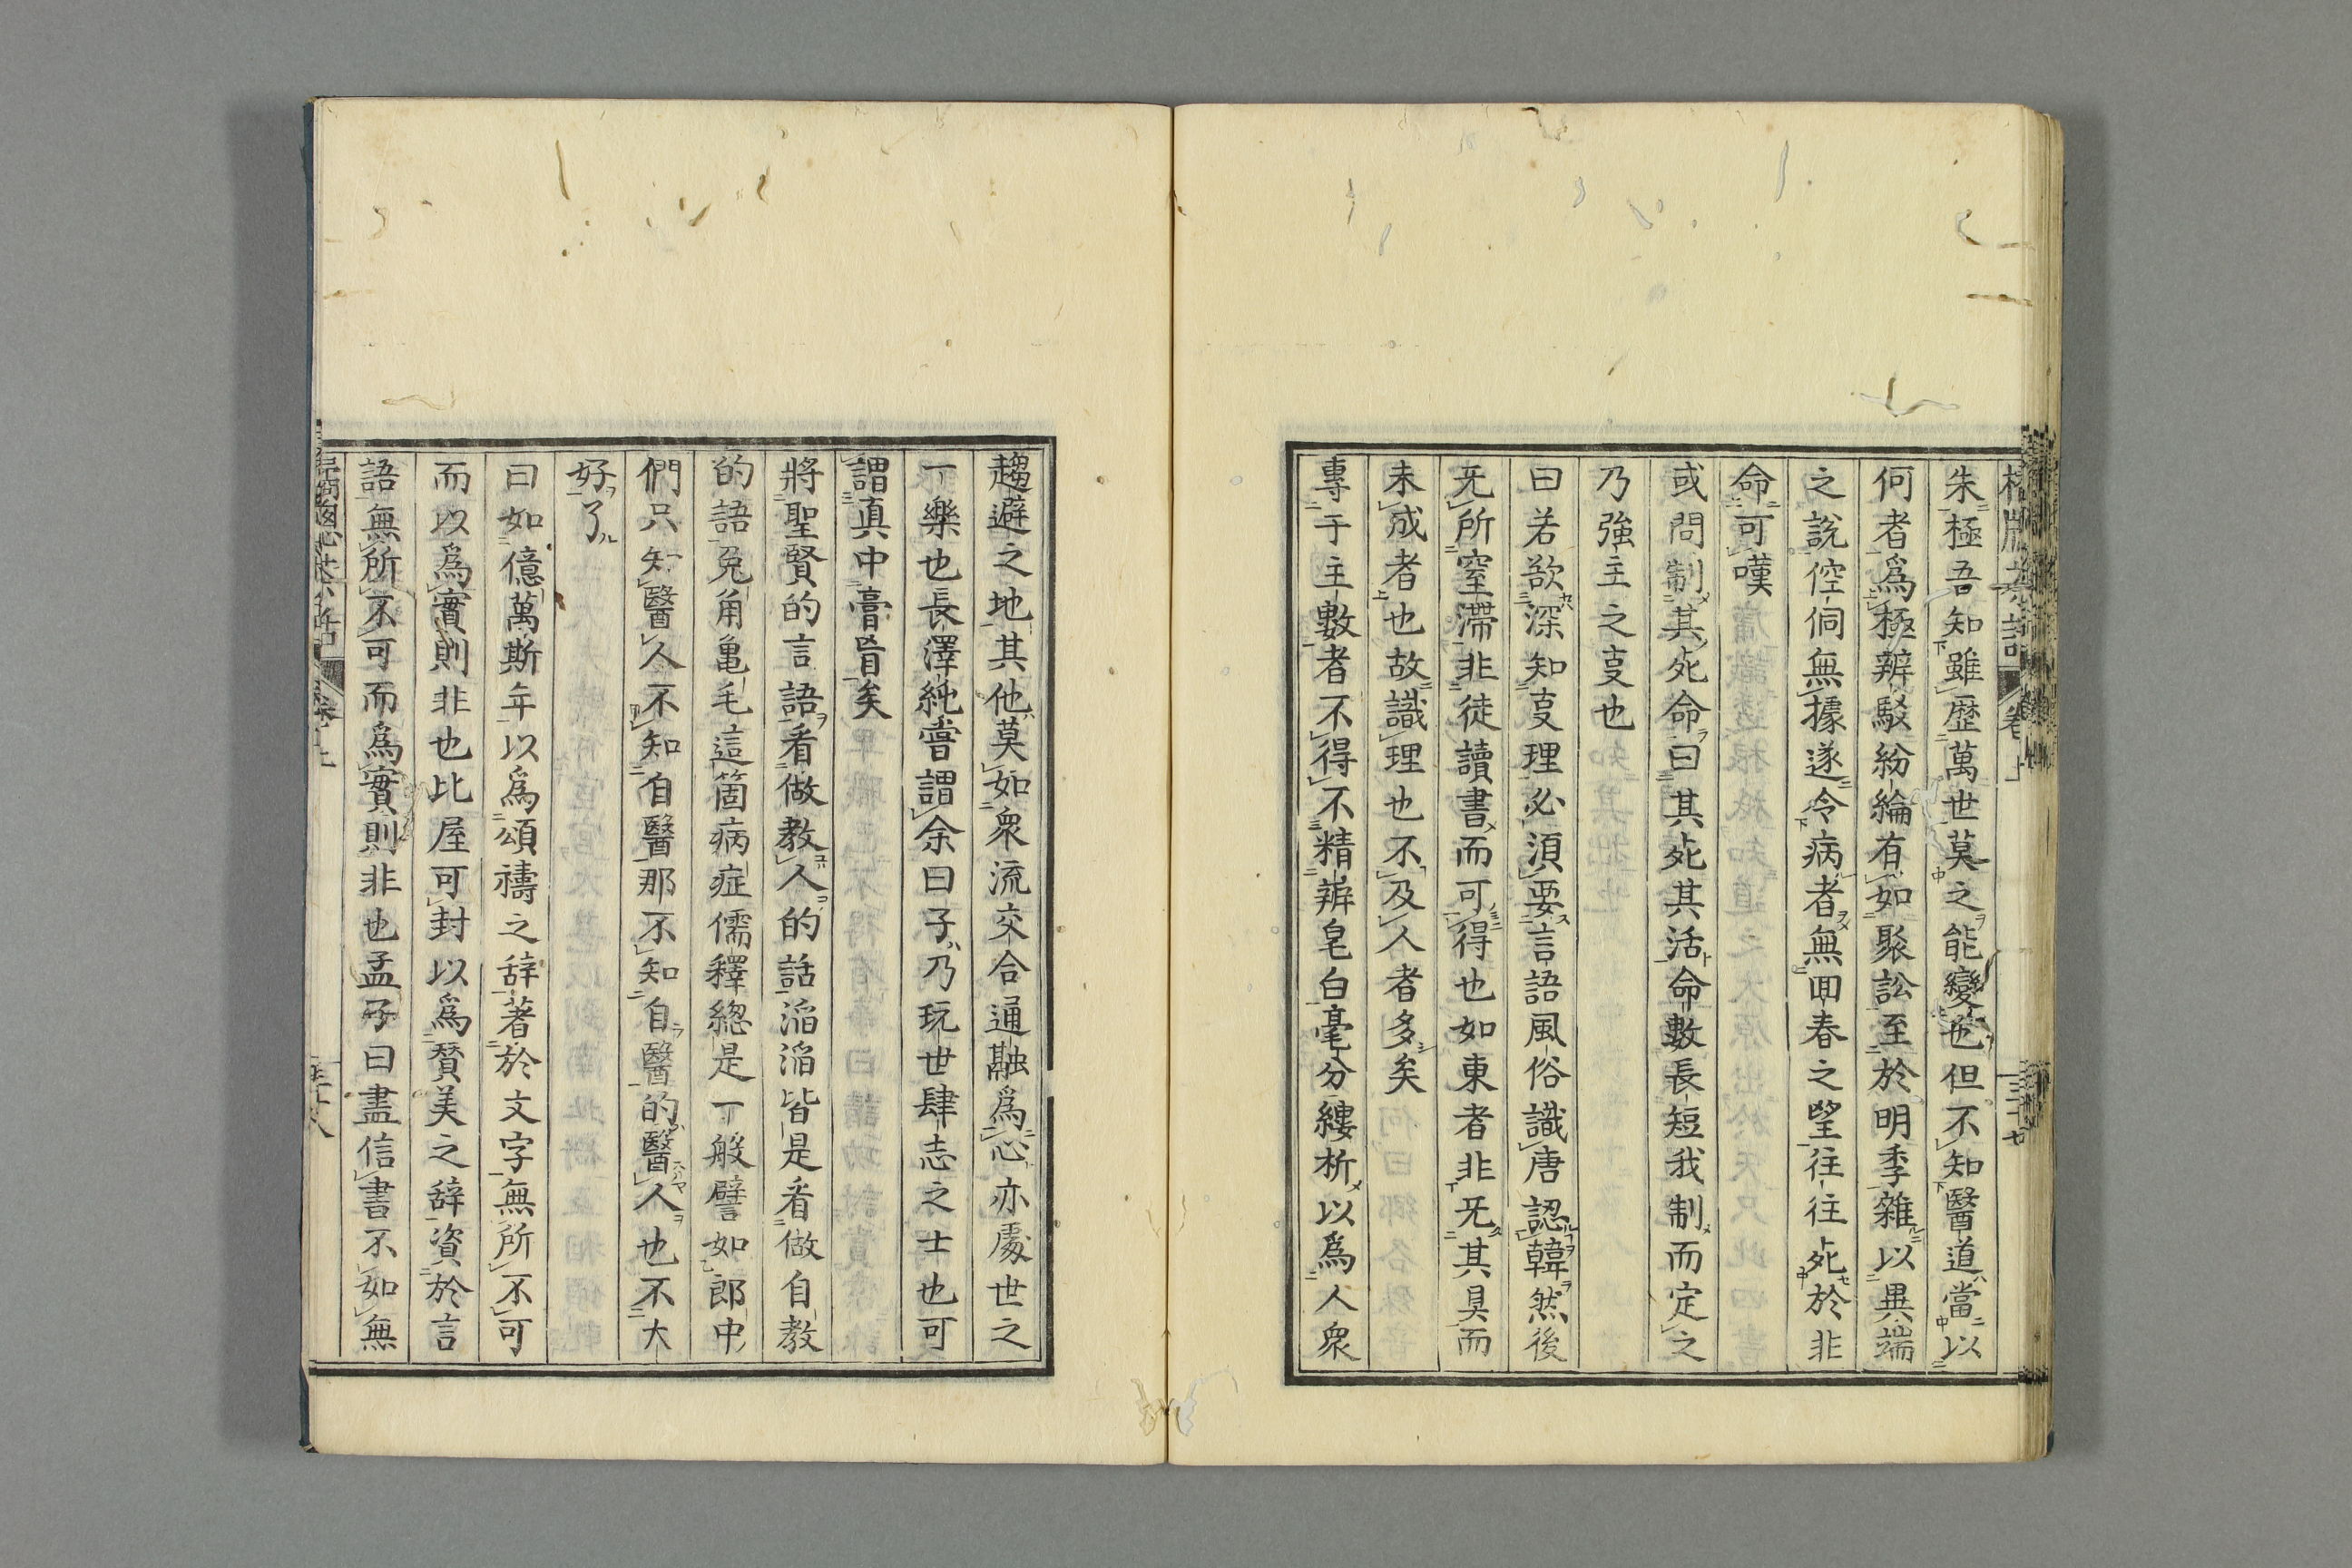 朱極吾知雖歴萬世莫之能變也但不知醫道當以
何者爲極辨駁紛綸有如聚訟至於明季雜以異端
之説倥侗無據遂令病者無回春之望往往死於非
命可嘆
或問制其死命曰其死其活命數長短我制而定之
乃強主之㕝也
曰若欲深知㕝理必須要言語風俗識唐認韓然後
旡所窒滯非徒讀書而可得也如東者非旡其具而
未成者也故識理也不及人者多矣
專于主數者不得不精辨皂白毫分縷析以爲人衆
趨避之地其他莫如衆流交合通融爲心亦處世之
一樂也長澤純嘗謂余曰子乃玩世肆志之士也可
謂眞中膏肓矣
將聖賢的言語看做教人的話滔滔皆是看做自教
的語兎角亀毛這箇病症儒釋總是一般譬如郎中
們只知醫人不知自醫那不知自醫的醫人也不大
好了
曰如億萬斯年以爲頌禱之辞著於文字無所不可
而以爲實則非也比屋可封以爲賛美之辞資於言
語無所不可而爲實則非也孟子曰盡信書不如無